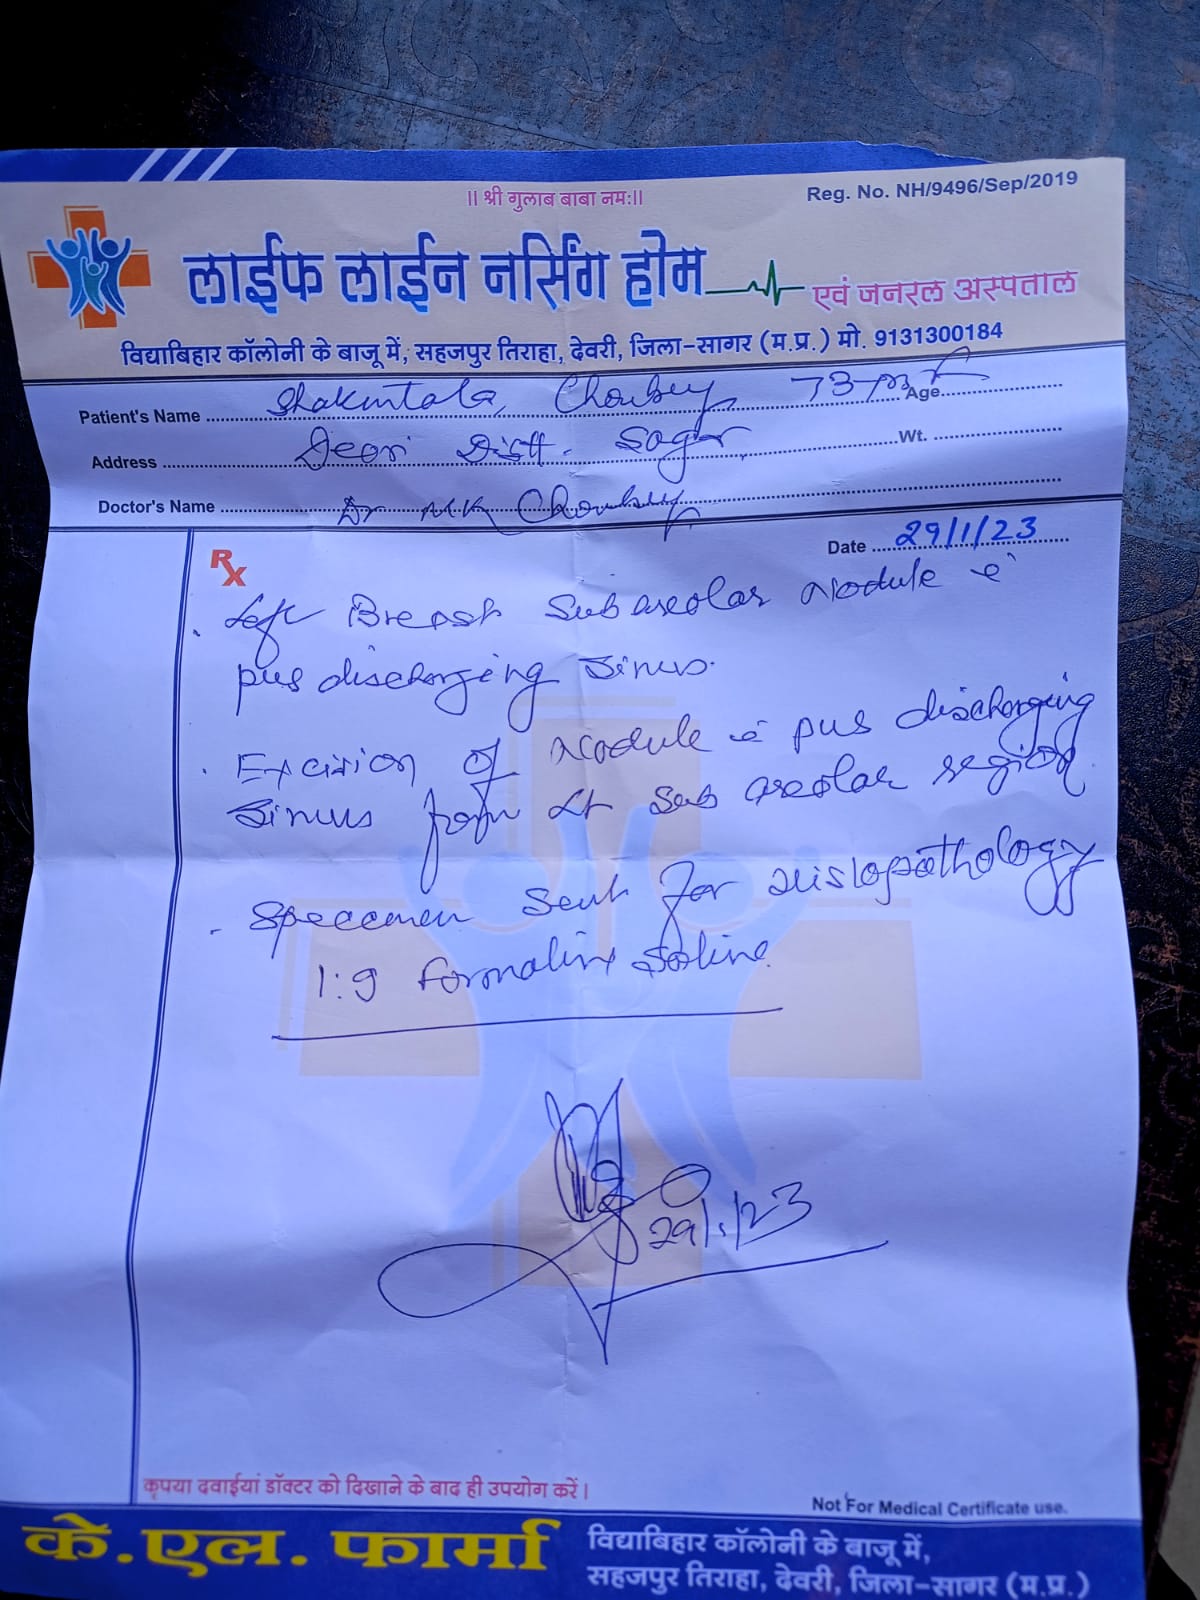 ॥ श्री गुलाब बाबा नमः॥
Reg. No. NH/9496/Sep/2019
लाईफ लाईन नर्सिंग होम एवं जनरल अस्पताल
विद्याबिहार कॉलोनी के बाजू में, सहजपुर तिराहा, देवरी, जिला-सागर (म.प्र.) मो. 9131300184
Patient's Name Shakuntala Choubey 73 Age
Address Deori Distt. Sagar Wt.
Doctor's Name Dr MK Choubey
Date 29/1/23
Rx
. Left Breast Subareolar Nodule c̄
pus discharging Sinus.
. Excision of Nodule c̄ pus discharging
Sinus from Lt Sub areolar region
. Specimen Sent for Histopathology
1:9 Formaline Saline
29/1/23
कृपया दवाईयां डॉक्टर को दिखाने के बाद ही उपयोग करें।
Not For Medical Certificate use.
के.एल. फार्मा
विद्याबिहार कॉलोनी के बाजू में,
सहजपुर तिराहा, देवरी, जिला-सागर (म.प्र.)